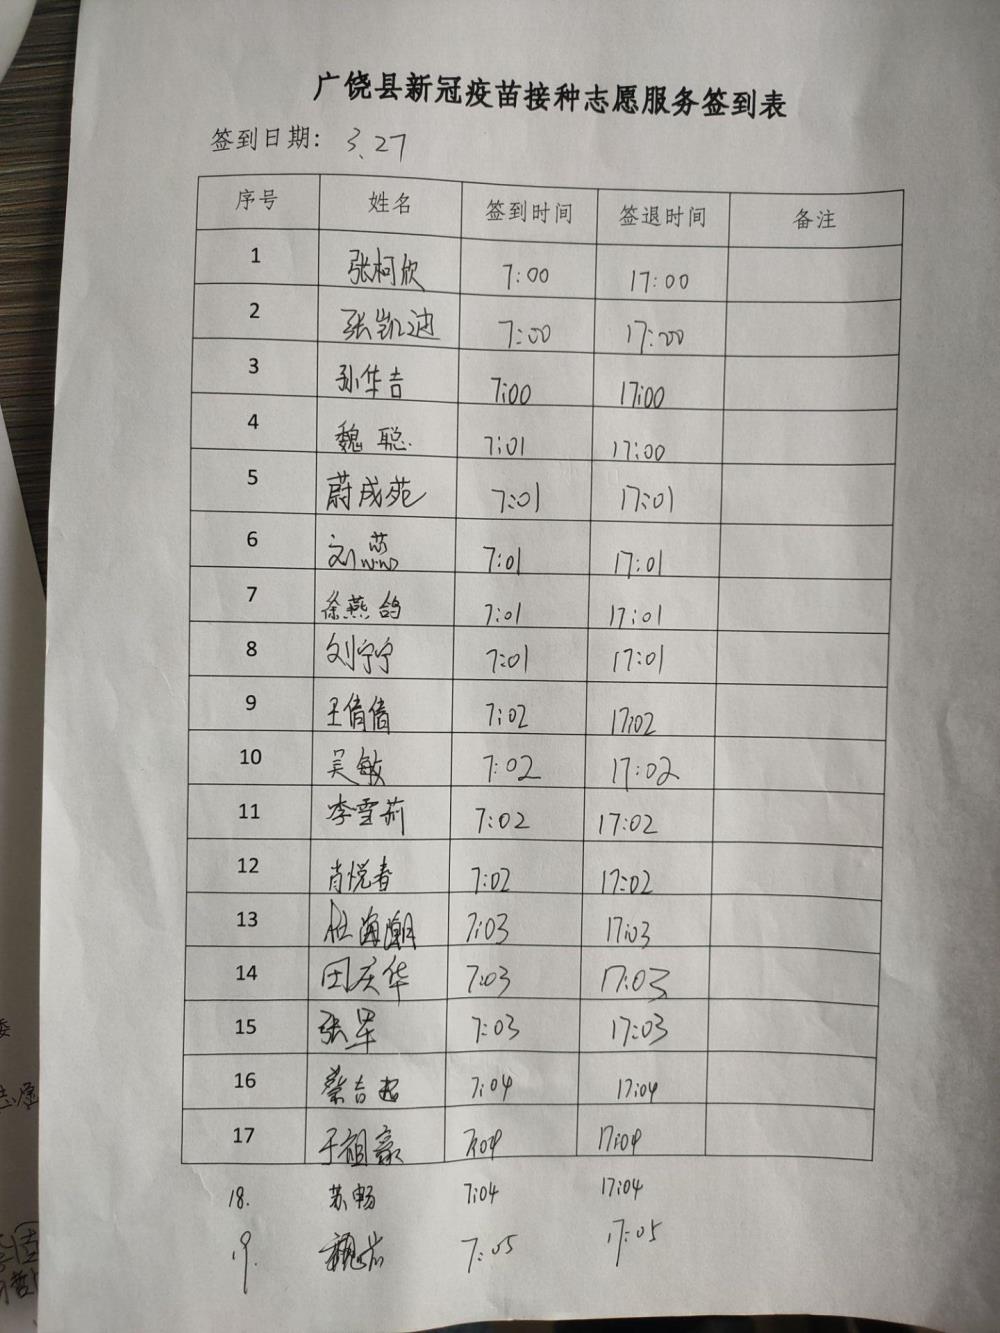 广饶县新冠疫苗接种志愿服务签到表
签到日期: 3.27
序号 姓名 签到时间 签退时间 备注
1 张柯欣 7:00 17:00
2 张凯迪 7:00 17:00
3 孙华吉 7:00 17:00
4 魏聪 7:01 17:00
5 蔚成苑 7:01 17:01
6 刘蕊 7:01 17:01
7 徐燕鸽 7:01 17:01
8 刘宁宁 7:01 17:01
9 王倩倩 7:02 17:02
10 吴敏 7:02 17:02
11 李雪莉 7:02 17:02
12 肖悦春 7:02 17:02
13 杜海潮 7:03 17:03
14 田庆华 7:03 17:03
15 张军 7:03 17:03
16 蔡吉起 7:04 17:04
17 于祖豪 7:04 17:04
18. 苏畅 7:04 17:04
19. 魏岩 7:05 17:05